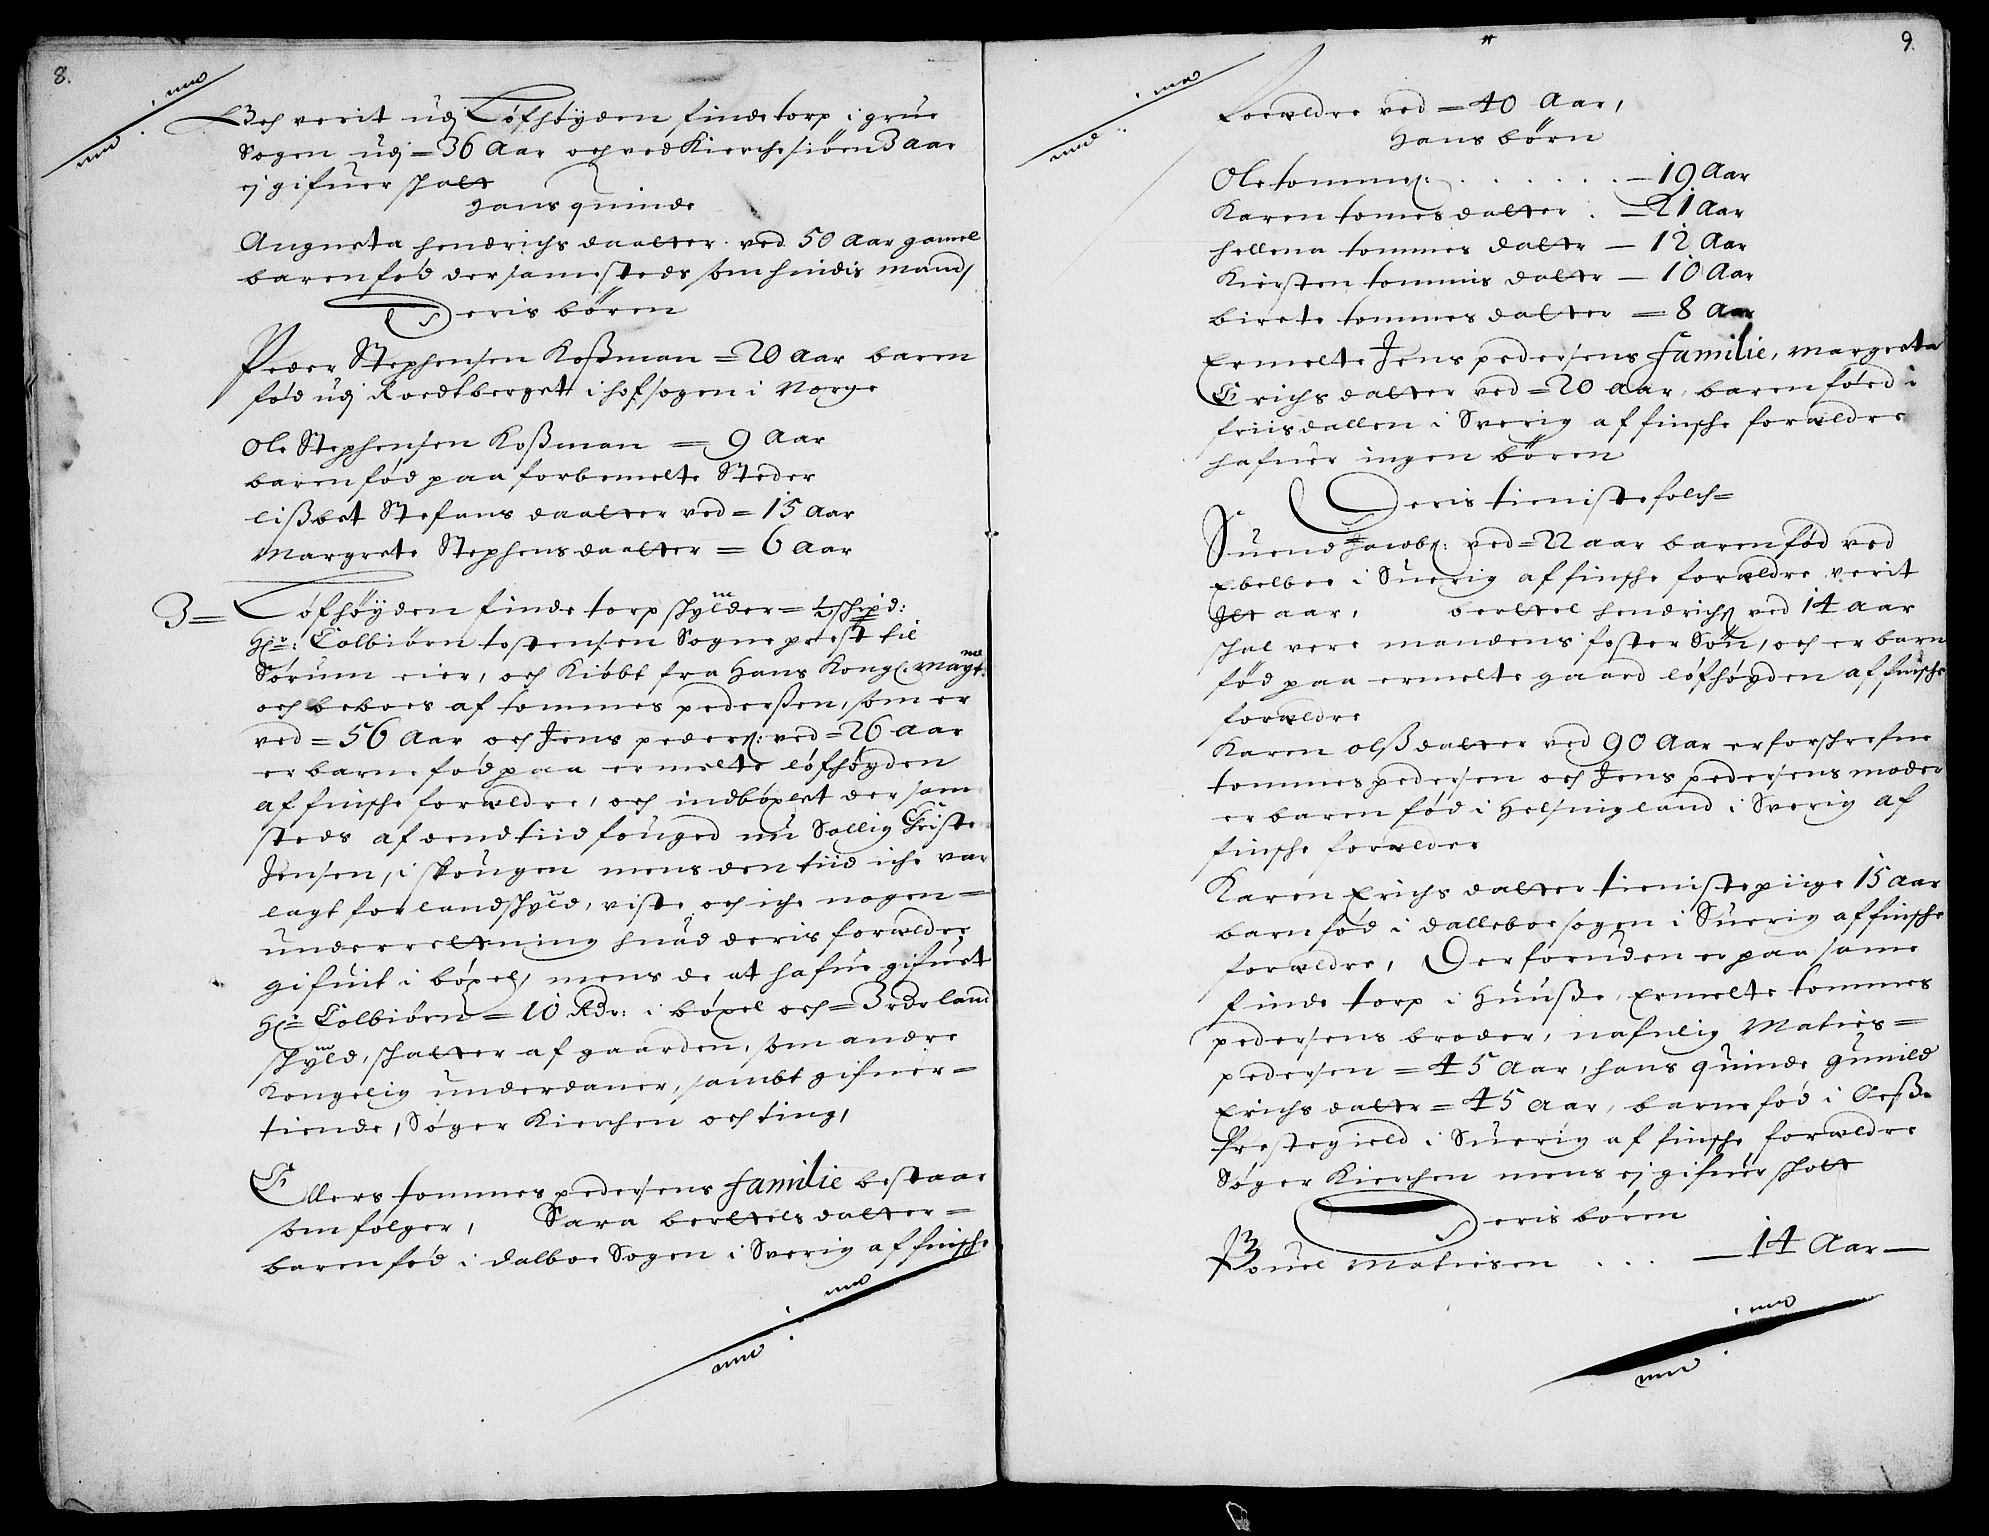 8.
och verit udj Løfhøyden finde torp i grue
Sogen udj = 36 Aar och ved Kierchesiøen 3 aar
ej gifuer schatt
Hans quinde
Angneta hendrichs daatter ved 50 Aar gamel
baren fød der samesteds som hindis mand,
Deris bören
Peder Stephensen Koßman = 20 aar baren
fød udj Roedtberget i hofsogen i Norge
Ole Stephensen Koßman = 9 Aar
baren fød paa forbemelte Steder
lißbet Stefans daatter ved = 15 Aar
Margrete Stephensdaatter = 6 Aar
3 = Løfhøyden finde torp schylder = ½ schipd:
Hr: Colbiörn tostensen Sogneprest til
Sørum eier, och Kiöbt fra Hans Kongl. Mayt:
och beboes af tommes pederßen, som er
ved = 56 Aar och Jens peders: ved = 26 Aar
er barne fød paa ermelte løfhøyden
af finsche forældre, och indböxlet der sam
steds af dend tiid fouged nu Sallig Christe
Jensen, i skougen mens den tiid iche var
lagt for landschyld, viste och iche nogen =
underrettning huad deris forældre
gifuit i böxel, mens de at hafue gifuet
Hr: Colbiörn = 10 Rdr: i böxel och = 3 rdr land
schyld, schatter af gaarden, som andre
Kongelig underdaner, sambt gifuer =
tiende, Søger Kierchen och ting,
Ellers tommes pedersens familie bestaar
som følger, Sara bertels datter =
baren fød i dalboe Sogen i Sverig af finsche
9.
Forældre ved = 40 Aar,
Hans börn
Ole tommes: . . . . . . . — 19 Aar
Karen tomes datter . — 21 Aar
hellena tommes datter — 12 Aar
Kiersten tommis datter — 10 Aar
birete tommes datter = 8 Aar
Ermelte Jens pedersens familie, margreta
Erichs datter ved = 20 aar, baren föed i
friisdallen i Sverig af finsche forældre
hafuer ingen bören
Deris tieniste folch =
Suend Jacobs: ved = 22 aar baren fød ved
Ebelboe i Suerig af finsche forældre verit
Jtt aar, bertel hendrichs ved 14 aar
schal vere mandens foster Søn, och er barn
fød paa ermelte gaard løfhøyden af finsche
forældre
Karen olß datter ved 90 Aar er forschrefne
tommes pedersen och Jens pedersens moder
er baren fød i Helsingland i Sverig af
finsche forældre
Karen Erichs datter tieniste piige 15 aar
barn fød i dalleboe sogen i Suerig af finsche
forældre, Der foruden er paa same
finde torp i Huuße, Ermelte tommes
pedersens broder, nafnlig Maties =
pedersen = 45 Aar, hans quinde gunild
Erichs datter = 45 Aar, barne fød i Aeße
Prestegield i Suerig af finsche forældre
Søger Kierchen mens ej gifuer schatt
Deris bören
Pouel Matiesen . . . — 14 Aar —